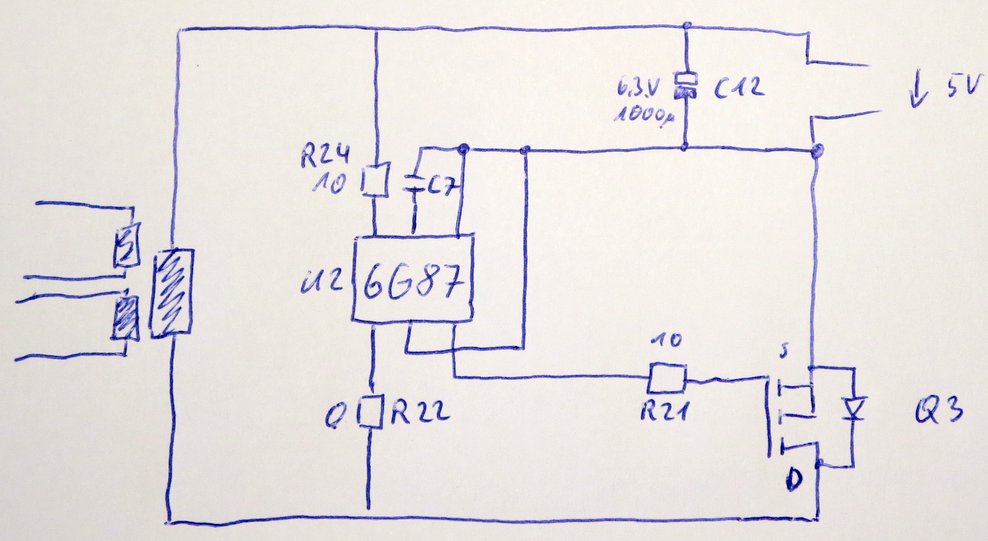 6.3V C12 ↓ 5V
1000µ
R24
10 C7
U2 6G87
10
S
R21
0 R22 Q3
D